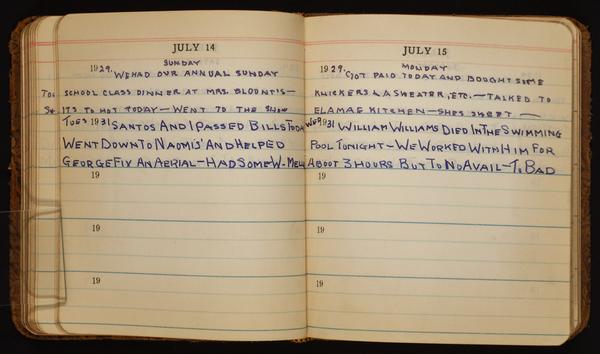 JULY 14
SUNDAY
1929. WE HAD OUR ANNUAL SUNDAY
SCHOOL CLASS DINNER AT MRS. BLOUNT'S-
IT'S TO HOT TODAY - WENT TO THE SHOW
TUES 1931 SANTOS AND I PASSED BILLS TODA
WENT DOWN TO NAOMIS' AND HELPED
GEORGE FIX AN AERIAL - HAD SOME W. MELL
19
19
19
JULY 15
MONDAY
1929. GOT PAID TODAY AND BOUGHT SOME
KNICKERS & A SWEATER, ETC. - TALKED TO
ELAMAE KITCHEN - SHES SWEET -
WED 1931 WILLIAM WILLIAMS DIED IN THE SWIMMING
POOL TONIGHT - WE WORKED WITH HIM FOR
ABOUT 3 HOURS BUT TO NO AVAIL - TO BAD
19
19
19